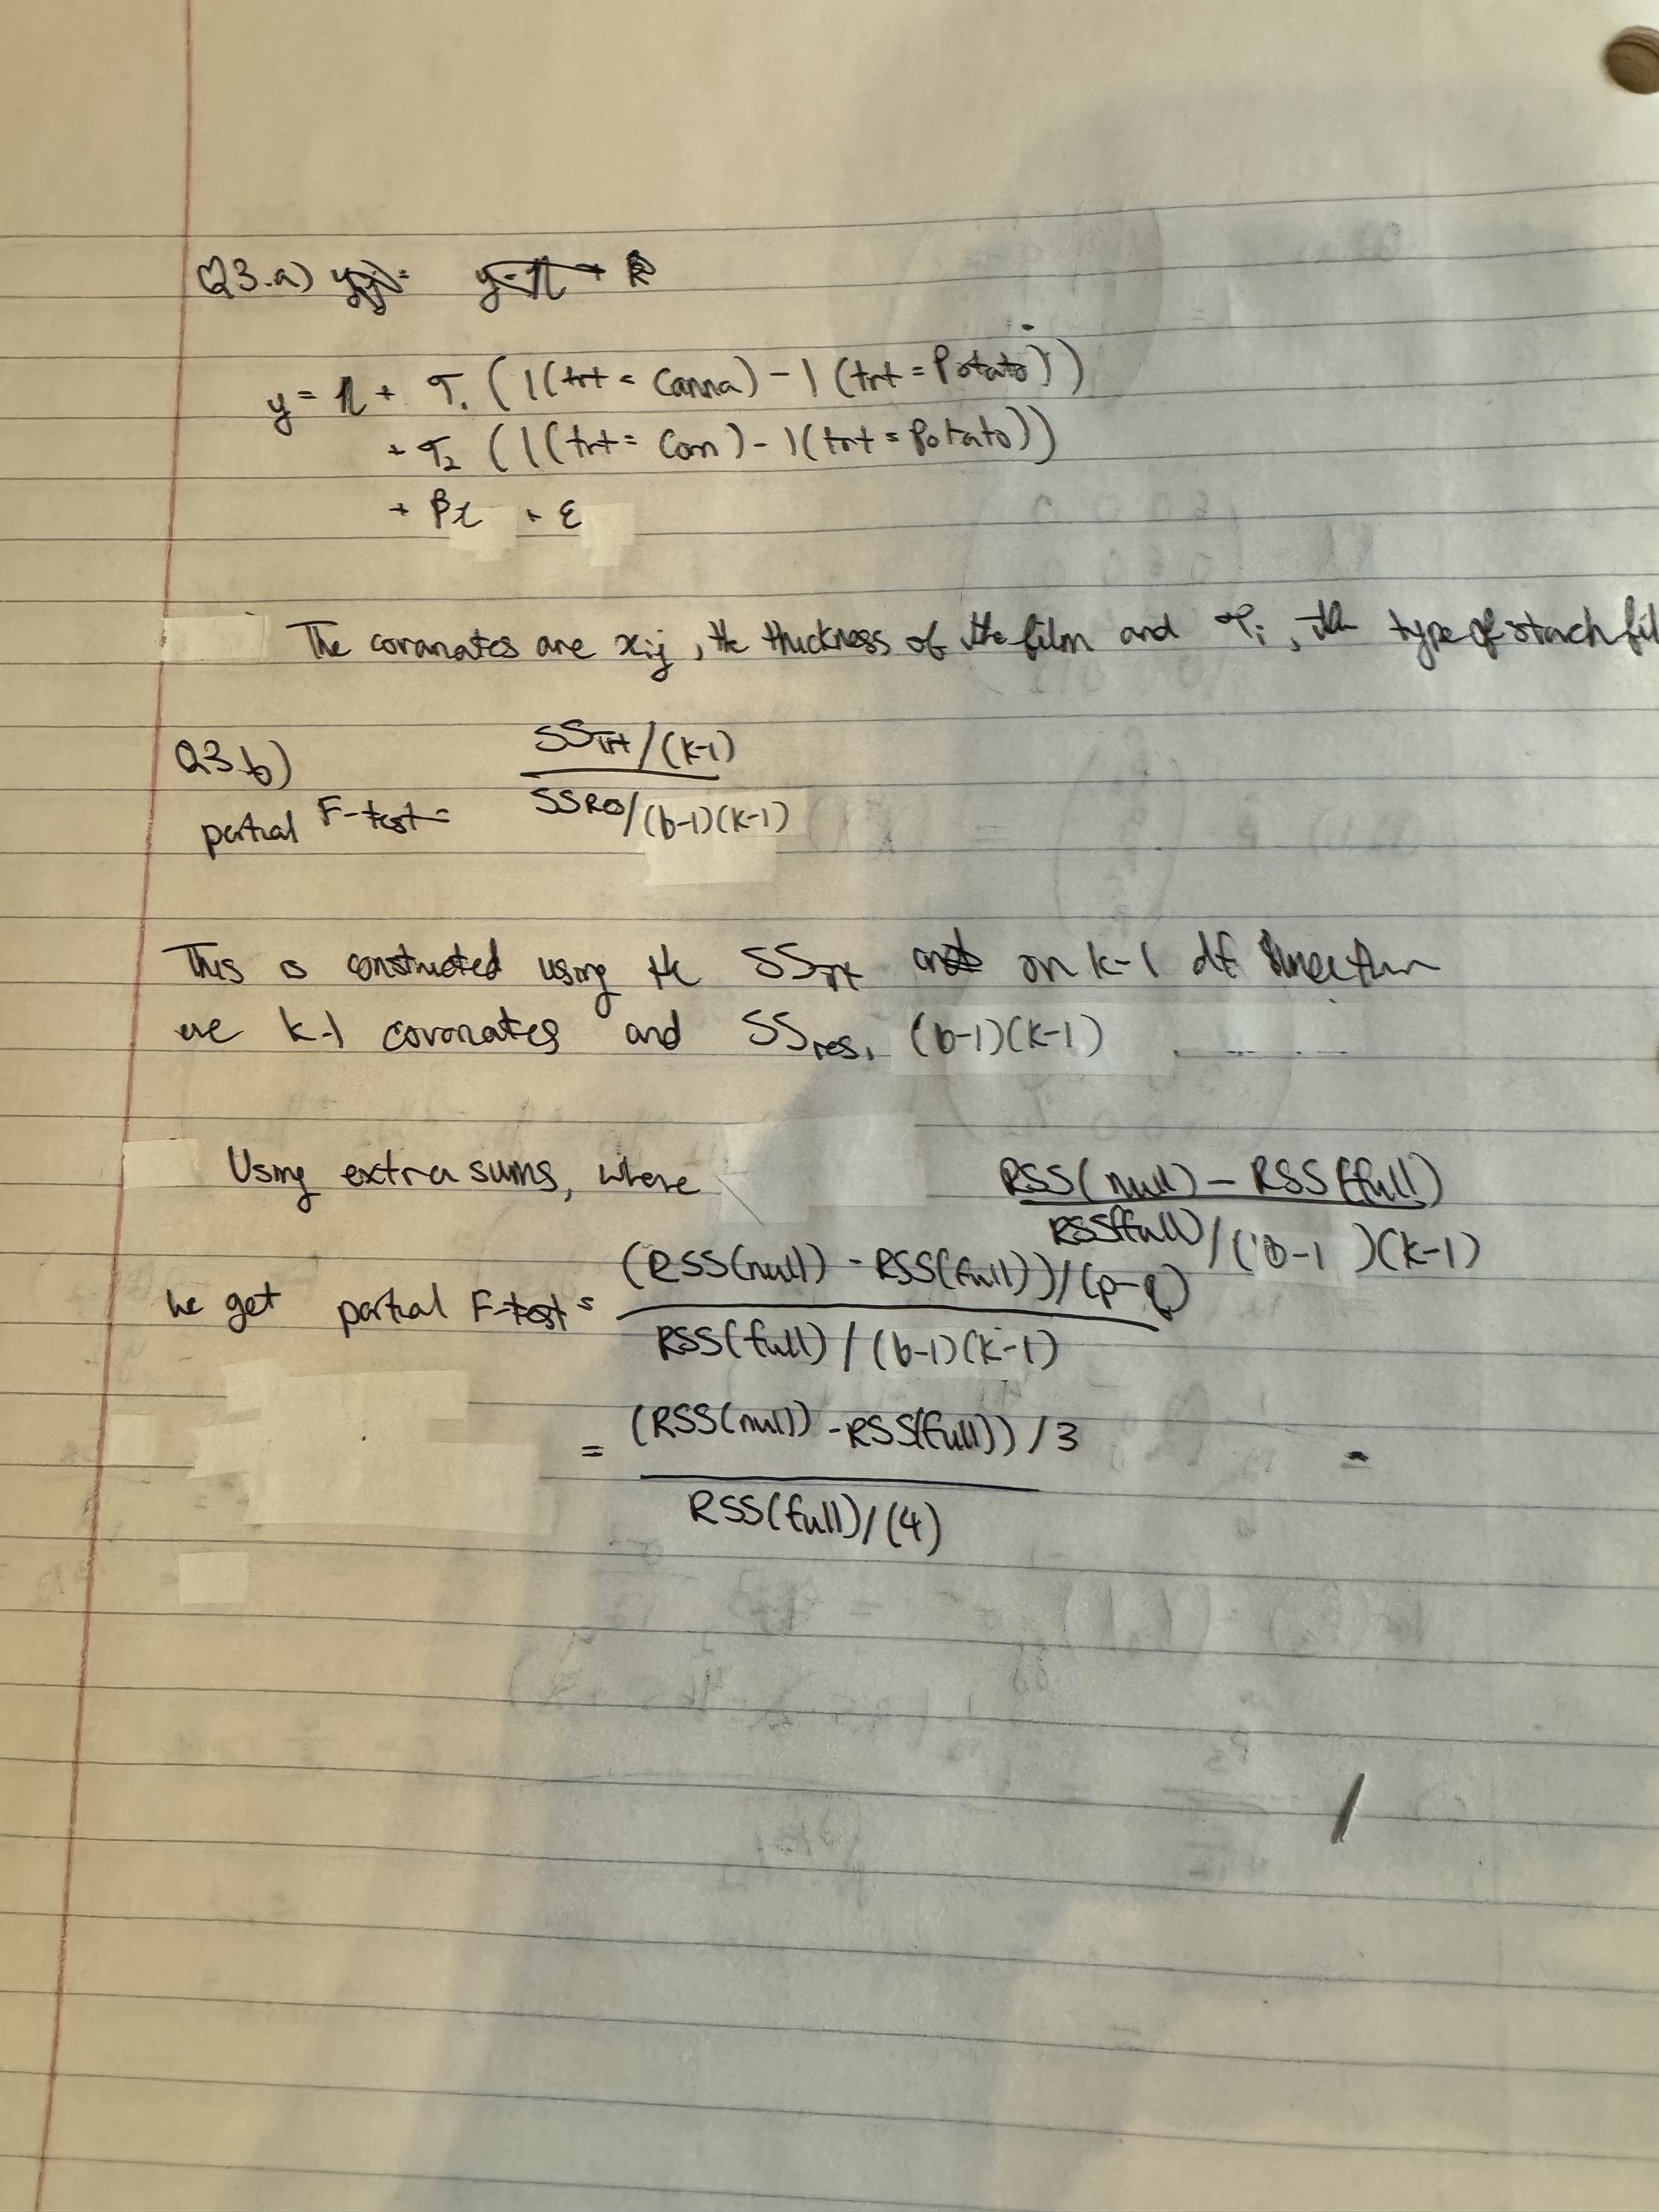 Q3.a)
y = η + τ₁ (1(trt = Canna) - 1(trt = Potato))
+ τ₂ (1(trt = Corn) - 1(trt = Potato))
+ βx + ε
The covariates are xij, the thickness of the film and τi, the type of starch fil
Q3.b)
partial F-test = SSTrt/(k-1) / SSRes/(b-1)(k-1)
This is constructed using the SSTrt on k-1 df since there
are k-1 covariates and SSres, (b-1)(k-1)
Using extra sums, where RSS(null) - RSS(full) / RSS(full)/(b-1)(k-1)
we get partial F-test = (RSS(null) - RSS(full))/(p-q) / RSS(full)/(b-1)(k-1)
= (RSS(null) - RSS(full))/3 / RSS(full)/(4)